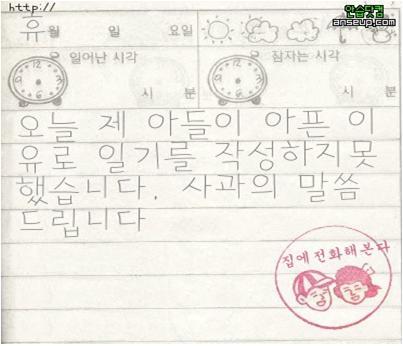 http://
안습닷컴
anseup.com
휴월 일 요일
일어난 시각 잠자는 시각
시 분 시 분
오늘 제 아들이 아픈 이
유로 일기를 작성하지못
했습니다. 사과의 말씀
드립니다
집에 전화해 본다